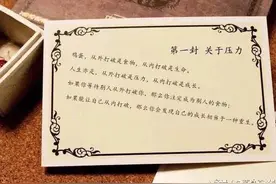 第一封 关于压力
鸡蛋，从外打破是食物，从内打破是生命。
人生亦是，从外打破是压力，从内打破是成长。
如果你等待别人从外打破你，那么你注定成为别人的食物；
如果能让自己从内打破，那么你会发现自己的成长相当于一种重生。